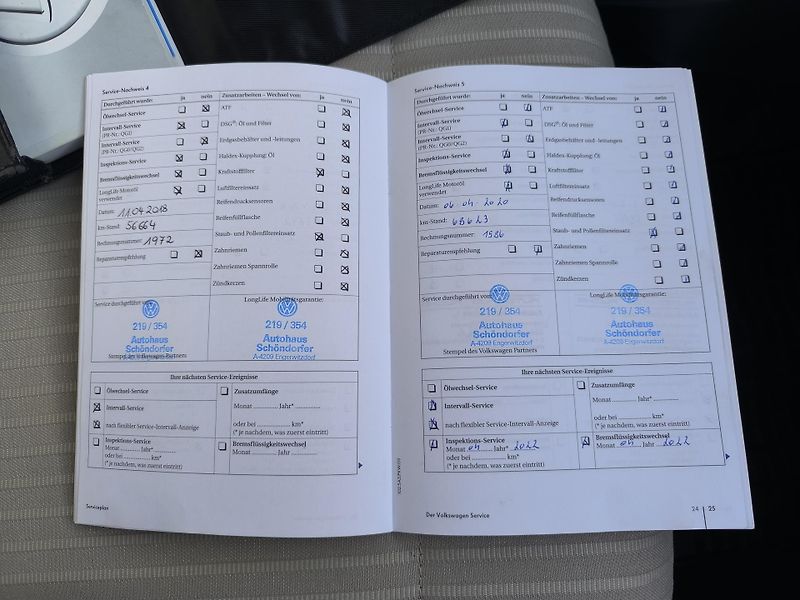 Service-Nachweis 4
Durchgeführt wurde: ja nein
Ölwechsel-Service
Intervall-Service
(PR-Nr.: QG1)
Intervall-Service
(PR-Nr.: QG0/QG2)
Inspektions-Service
Bremsflüssigkeitswechsel
LongLife Motoröl
verwendet
Datum: 11.04.2018
km-Stand: 56664
Rechnungsnummer: 1972
Reparaturempfehlung
Zusatzarbeiten – Wechsel von: ja nein
ATF
DSG®: Öl und Filter
Erdgasbehälter und -leitungen
Haldex-Kupplung: Öl
Kraftstofffilter
Luftfiltereinsatz
Reifendrucksensoren
Reifenfüllflasche
Staub- und Pollenfiltereinsatz
Zahnriemen
Zahnriemen Spannrolle
Zündkerzen
Service durchgeführt von:
219 / 354
Autohaus
Schöndorfer
A-4209 Engerwitzdorf
Stempel des Volkswagen Partners
LongLife Mobilitätsgarantie:
219 / 354
Autohaus
Schöndorfer
A-4209 Engerwitzdorf
Ihre nächsten Service-Ereignisse
Ölwechsel-Service
Intervall-Service
nach flexibler Service-Intervall-Anzeige
Inspektions-Service
Monat ............ Jahr*
oder bei ............ km*
(* je nachdem, was zuerst eintritt)
Zusatzumfänge
Monat ............ Jahr* ............
oder bei ............ km*
(* je nachdem, was zuerst eintritt)
Bremsflüssigkeitswechsel
Monat ............ Jahr ............
Serviceplan
Service-Nachweis 5
Durchgeführt wurde: ja nein
Ölwechsel-Service
Intervall-Service
(PR-Nr.: QG1)
Intervall-Service
(PR-Nr.: QG0/QG2)
Inspektions-Service
Bremsflüssigkeitswechsel
LongLife Motoröl
verwendet
Datum: 06.04.2020
km-Stand: 68643
Rechnungsnummer: 1586
Reparaturempfehlung
Zusatzarbeiten – Wechsel von: ja nein
ATF
DSG®: Öl und Filter
Erdgasbehälter und -leitungen
Haldex-Kupplung: Öl
Kraftstofffilter
Luftfiltereinsatz
Reifendrucksensoren
Reifenfüllflasche
Staub- und Pollenfiltereinsatz
Zahnriemen
Zahnriemen Spannrolle
Zündkerzen
Service durchgeführt von:
219 / 354
Autohaus
Schöndorfer
A-4209 Engerwitzdorf
Stempel des Volkswagen Partners
LongLife Mobilitätsgarantie:
219 / 354
Autohaus
Schöndorfer
A-4209 Engerwitzdorf
Ihre nächsten Service-Ereignisse
Ölwechsel-Service
Intervall-Service
nach flexibler Service-Intervall-Anzeige
Inspektions-Service
Monat 04 Jahr* 2022
oder bei ............ km*
(* je nachdem, was zuerst eintritt)
Zusatzumfänge
Monat ............ Jahr* ............
oder bei ............ km*
(* je nachdem, was zuerst eintritt)
Bremsflüssigkeitswechsel
Monat 04 Jahr 2022
Der Volkswagen Service
24 | 25